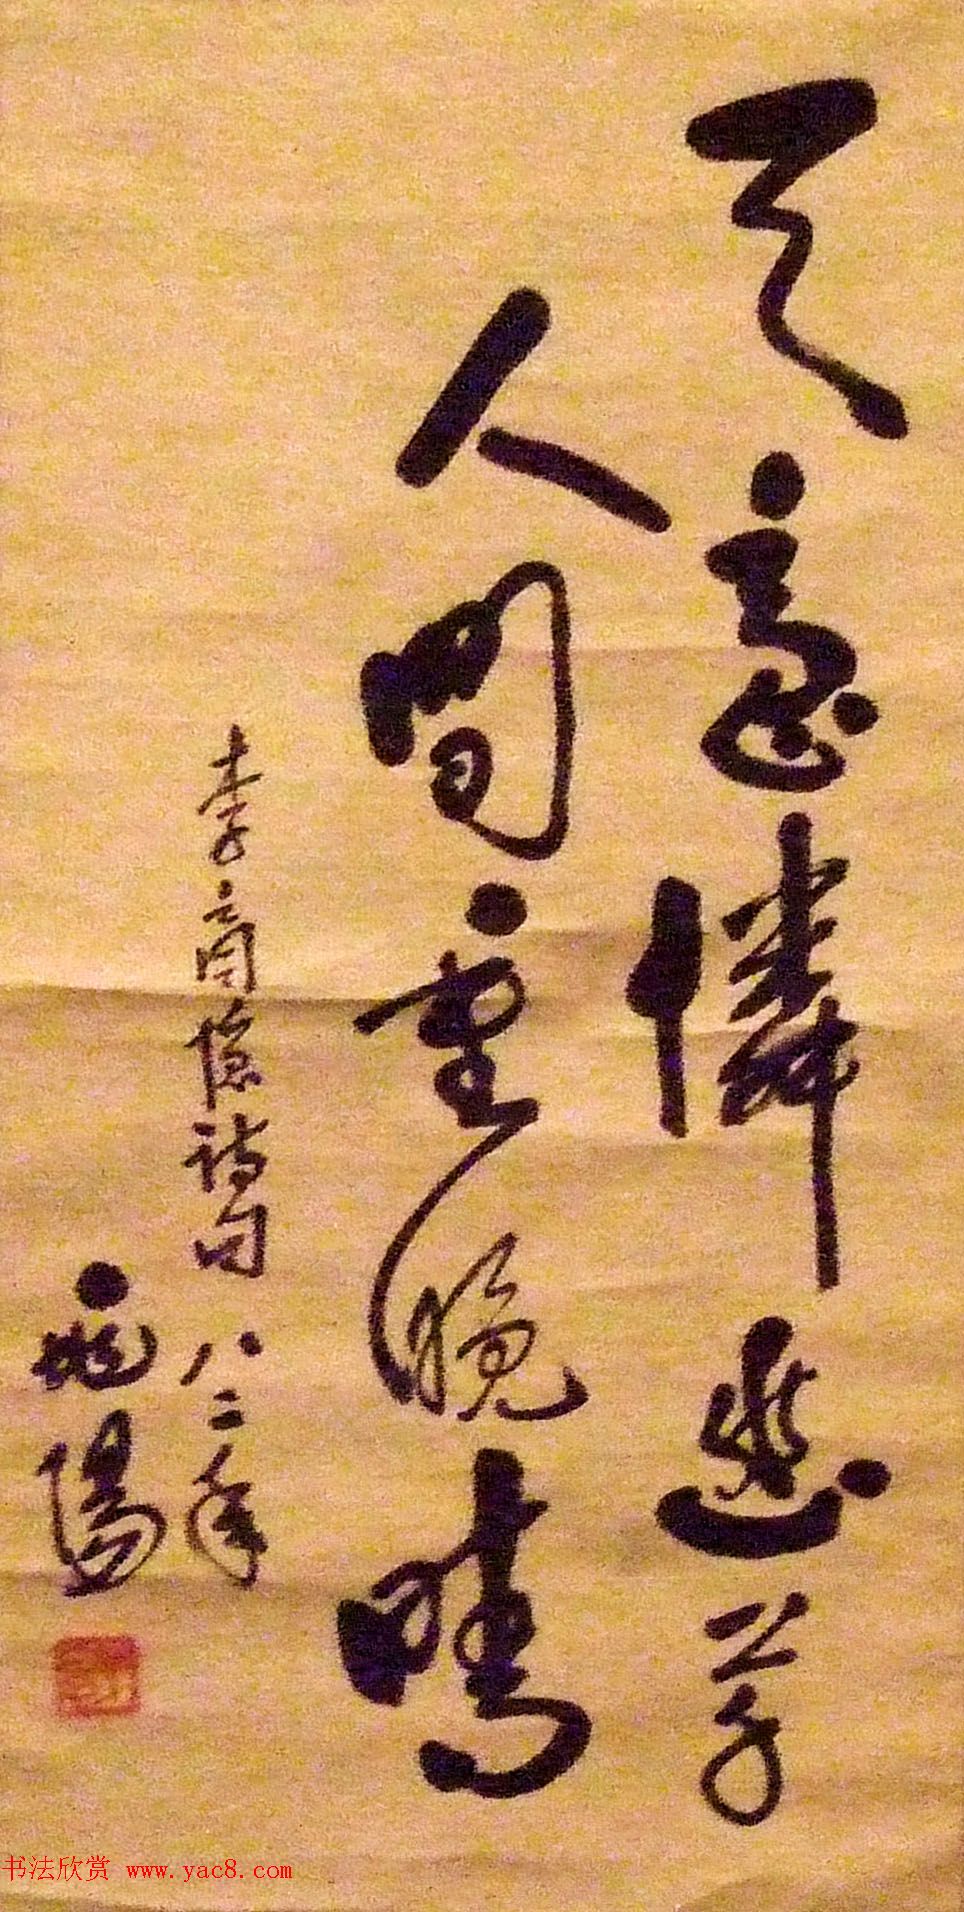 天意憐幽草
人間重晚晴
李商隱詩句 八二年
兆陽
书法欣赏 www.yac8.com